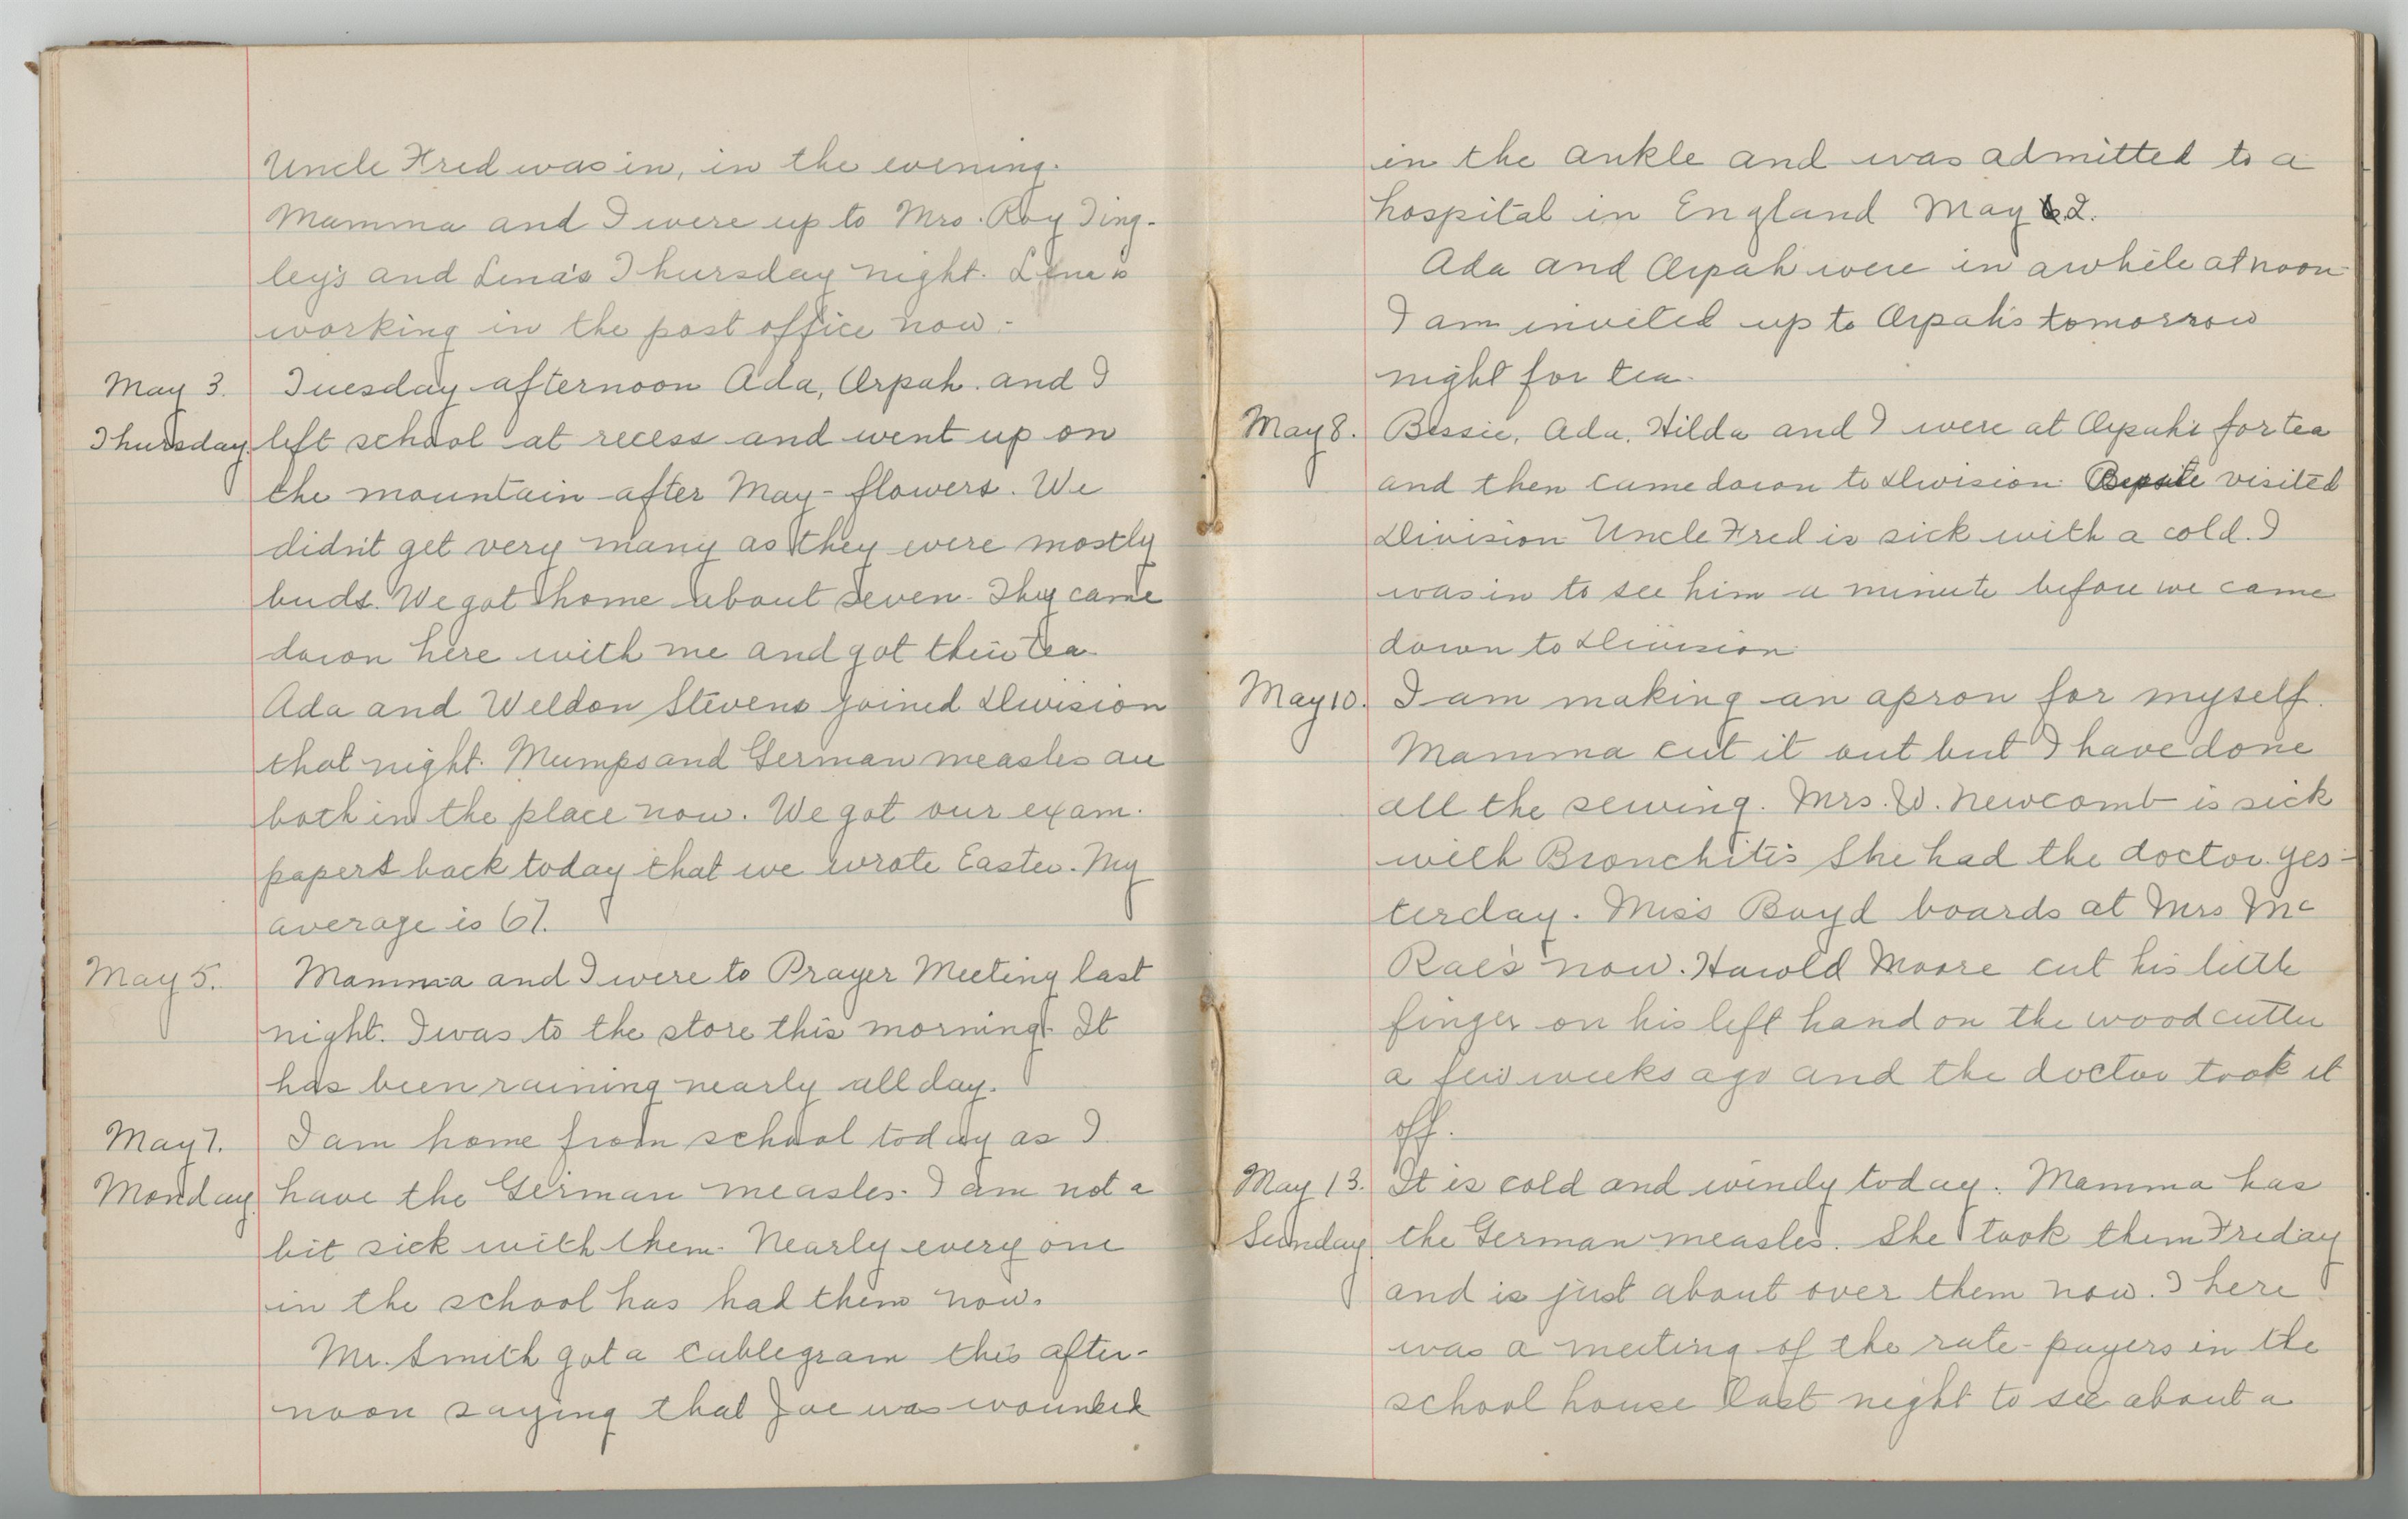 Uncle Fred was in, in the evening.
Mamma and I were up to Mrs. Roy Ting-
ley's and Lena's Thursday night. Lena is
working in the post office now.
May 3. Tuesday afternoon Ada, Orpah and I
Thursday. left school at recess and went up on
the mountain after May-flowers. We
didn't get very many as they were mostly
buds. We got home about seven. They came
down here with me and got their tea.
Ada and Weldon Stevens joined Division
that night. Mumps and German measles are
both in the place now. We got our exam.
papers back today that we wrote Easter. My
average is 67.
May 5. Mamma and I were to Prayer Meeting last
night. I was to the store this morning. It
has been raining nearly all day.
May 7. I am home from school today as I
Monday. have the German measles. I am not a
bit sick with them. Nearly every one
in the school has had them now.
Mr. Smith got a cablegram this after-
noon saying that Joe was wounded
in the ankle and was admitted to a
hospital in England May 2.
Ada and Orpah were in awhile at noon
I am invited up to Orpah's tomorrow
night for tea.
May 8. Bessie, Ada, Hilda and I were at Orpah's for tea
and then came down to Division. Bessie visited
Division Uncle Fred is sick with a cold. I
was in to see him a minute before we came
down to Division
May 10. I am making an apron for myself.
Mamma cut it out but I have done
all the sewing. Mrs. W. Newcomb is sick
with Bronchitis She had the doctor yes-
terday. Miss Boyd boards at Mrs Mc
Rae's now. Harold Moore cut his little
finger on his left hand on the wood cutter
a few weeks ago and the doctor took it
off.
May 13. It is cold and windy today. Mamma has
Sunday. the German measles. She took them Friday
and is just about over them now. There
was a meeting of the rate-payers in the
school house last night to see about a